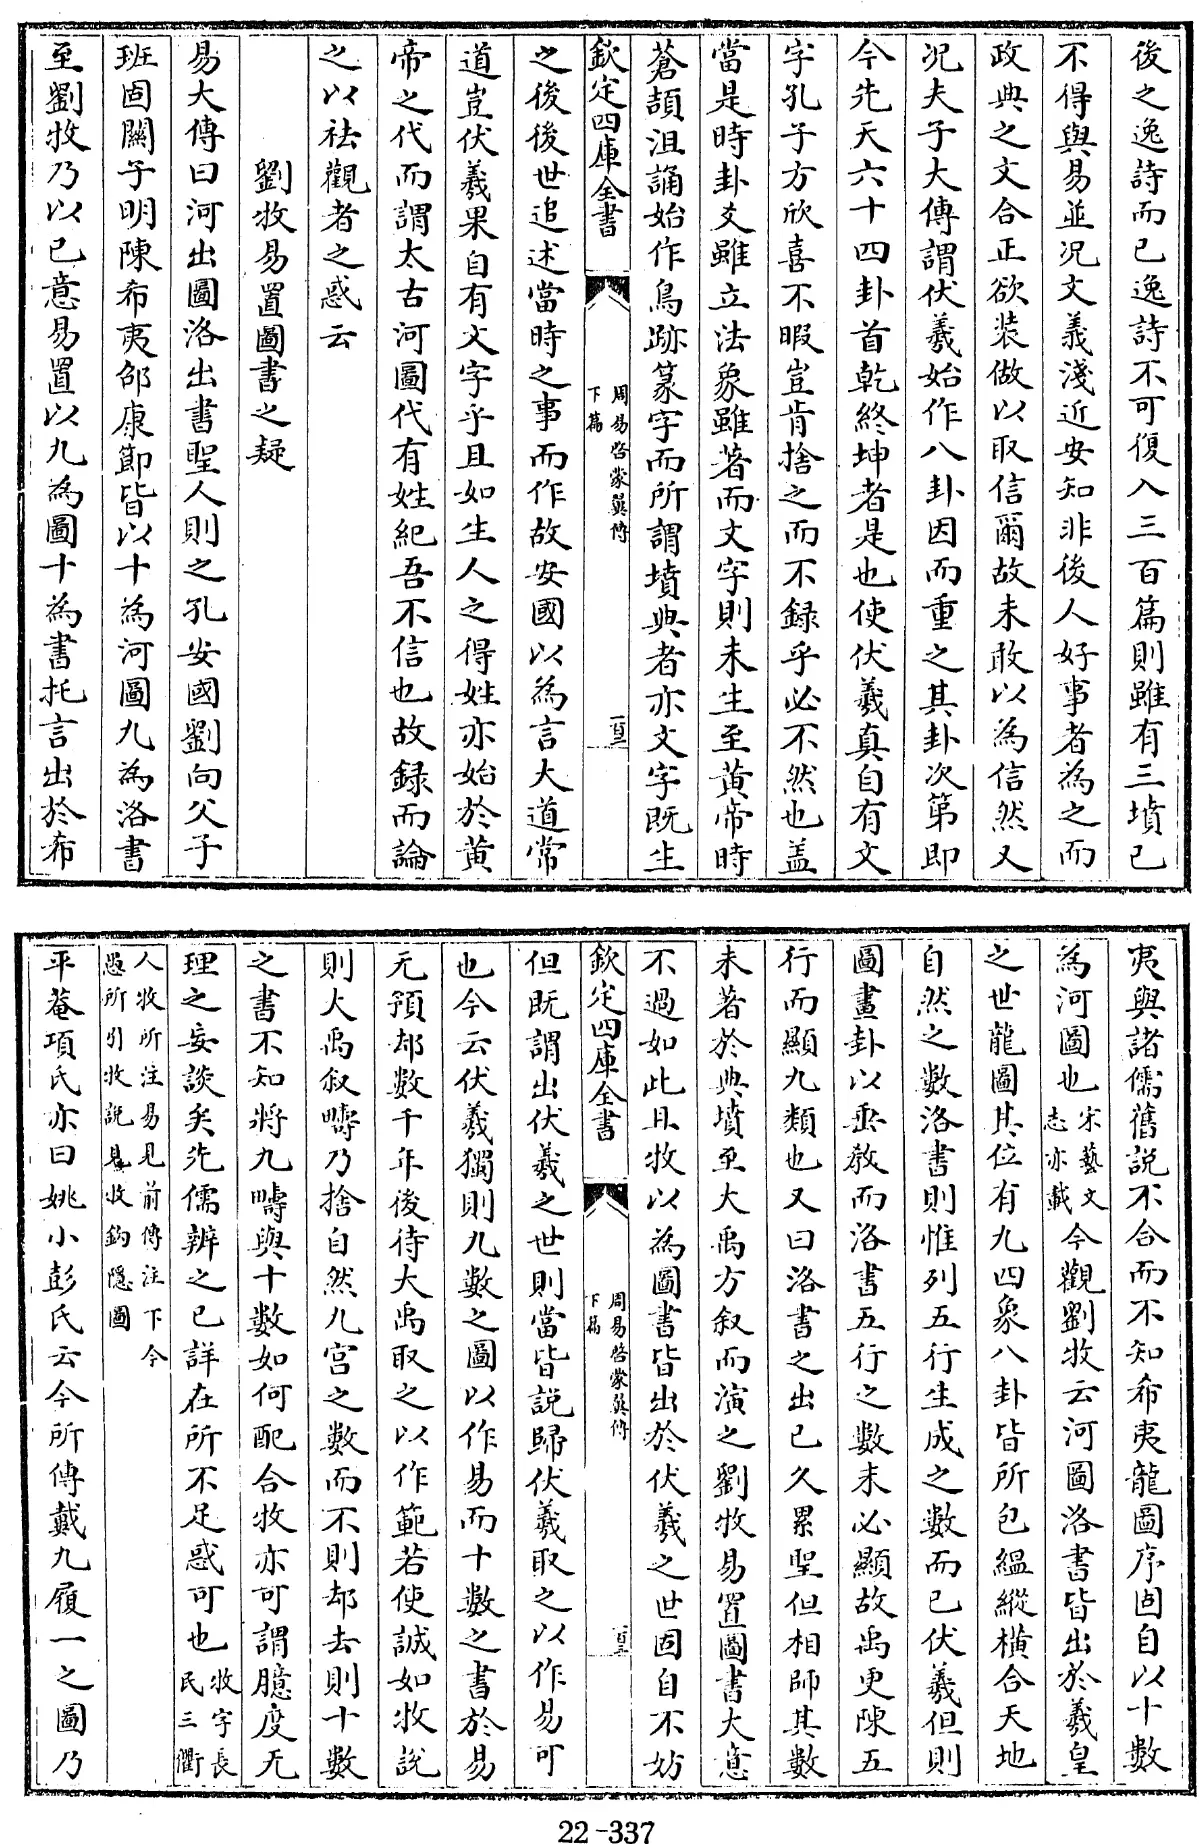 後之逸詩而已逸詩不可復入三百篇則雖有三墳已
不得與易並況文義淺近安知非後人好事者為之而
政典之文合正欲装做以取信爾故未敢以為信然又
況夫子大傳謂伏羲始作八卦因而重之其卦次第即
今先天六十四卦首乾終坤者是也使伏羲真自有文
字孔子方欣喜不暇豈肯捨之而不録乎必不然也蓋
當是時卦爻雖立法象雖著而文字則未生至黄帝時
蒼頡沮誦始作鳥跡篆字而所謂墳典者亦文字既生
欽定四庫全書
周易啓蒙翼傳
下篇
之後後世追述當時之事而作故安國以為言大道常
道豈伏羲果自有文字乎且如生人之得姓亦始於黄
帝之代而謂太古河圖代有姓紀吾不信也故録而論
之以祛觀者之惑云
劉牧易置圖書之疑
易大傳曰河出圖洛出書聖人則之孔安國劉向父子
班固關子明陳希夷邵康節皆以十為河圖九為洛書
至劉牧乃以已意易置以九為圖十為書托言出於希
夷與諸儒舊説不合而不知希夷龍圖序固自以十數
為河圖也宋藝文志亦載今觀劉牧云河圖洛書皆出於羲皇
之世龍圖其位有九四象八卦皆所包緼縱横合天地
自然之數洛書則惟列五行生成之數而已伏羲但則
圖畫卦以垂教而洛書五行之數未必顯故禹更陳五
行而顯九類也又曰洛書之出已久累聖但相師其數
未著於典墳至大禹方叙而演之劉牧易置圖書大意
不過如此且牧以為圖書皆出於伏羲之世固自不妨
欽定四庫全書
周易啓蒙翼傳
下篇
但既謂出伏羲之世則當皆説歸伏羲取之以作易可
也今云伏羲獨則九數之圖以作易而十數之書於易
无預却數千年後待大禹取之以作範若使誠如牧説
則大禹叙疇乃捨自然九宫之數而不則却去則十數
之書不知將九疇與十數如何配合牧亦可謂臆度无
理之妄談矣先儒辨之已詳在所不足惑可也牧字長民三衢
人牧所注易見前傳注下今
愚所引牧説見牧鈎隱圖
平菴項氏亦曰姚小彭氏云今所傳戴九履一之圖乃
22-337